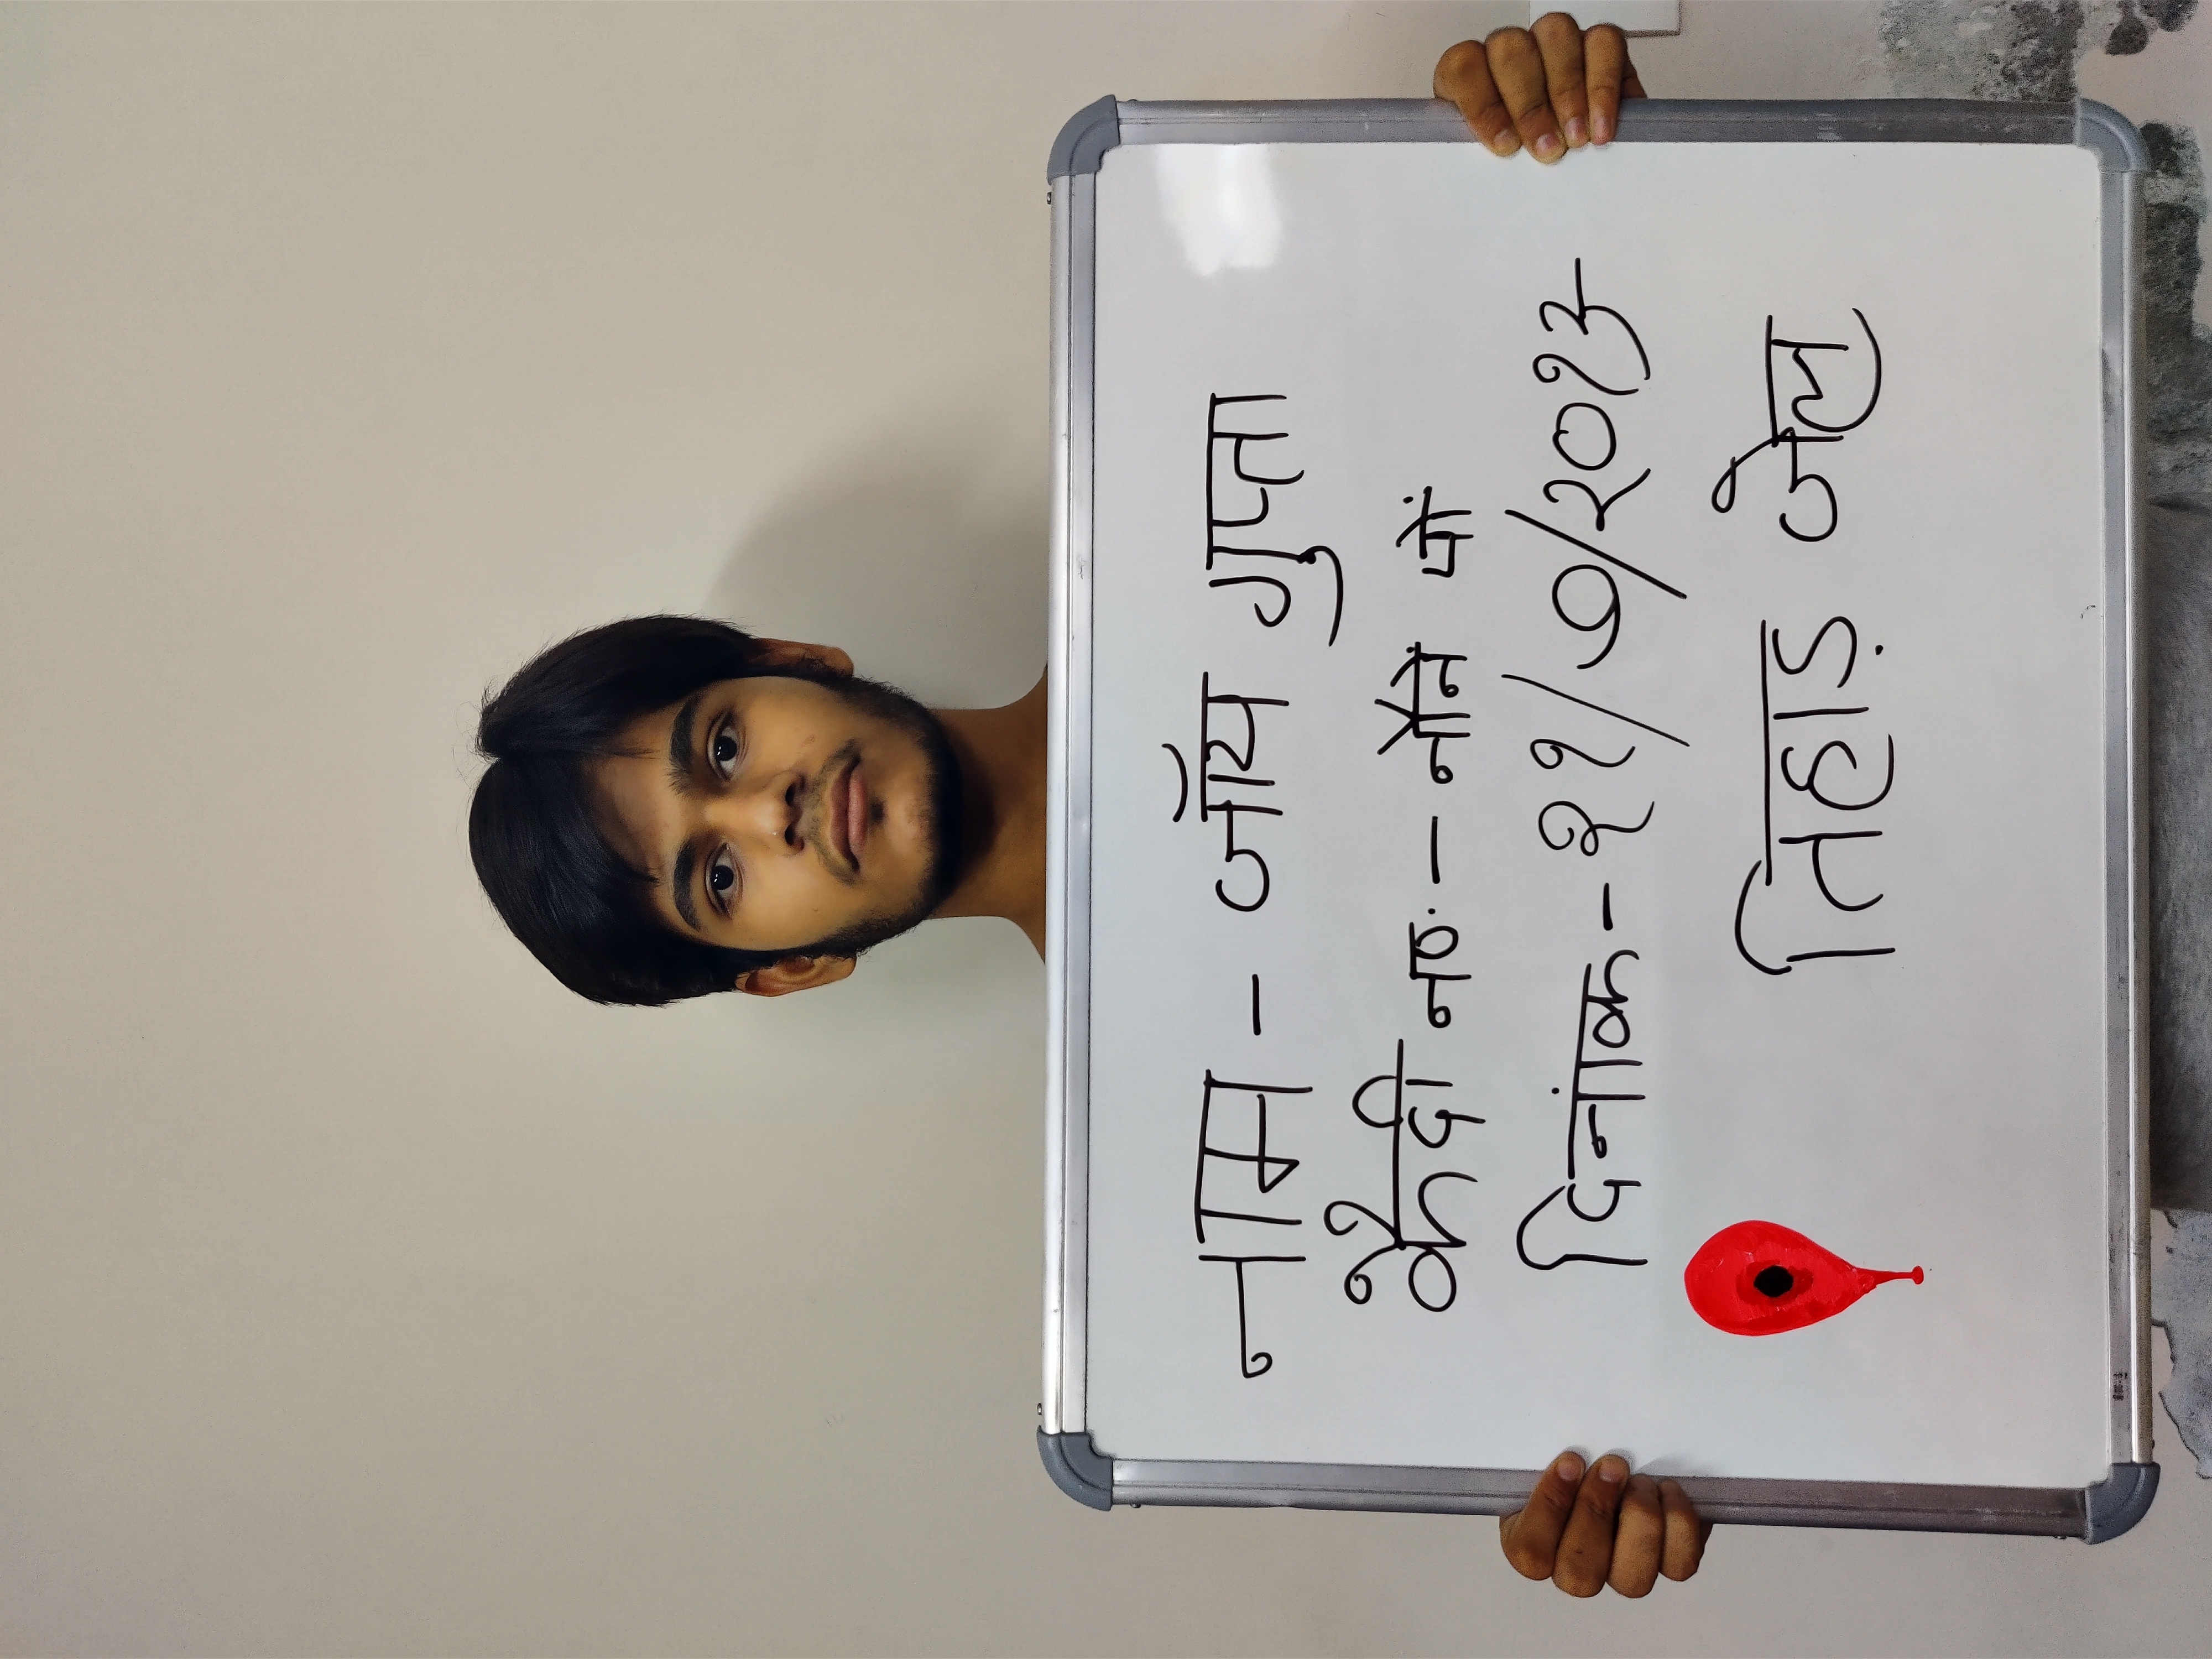 नाम - जॉय गुप्ता
कैदी न० - नौनें पों
दिनांक - २१/७/२०१३
तिहाड़ जेल